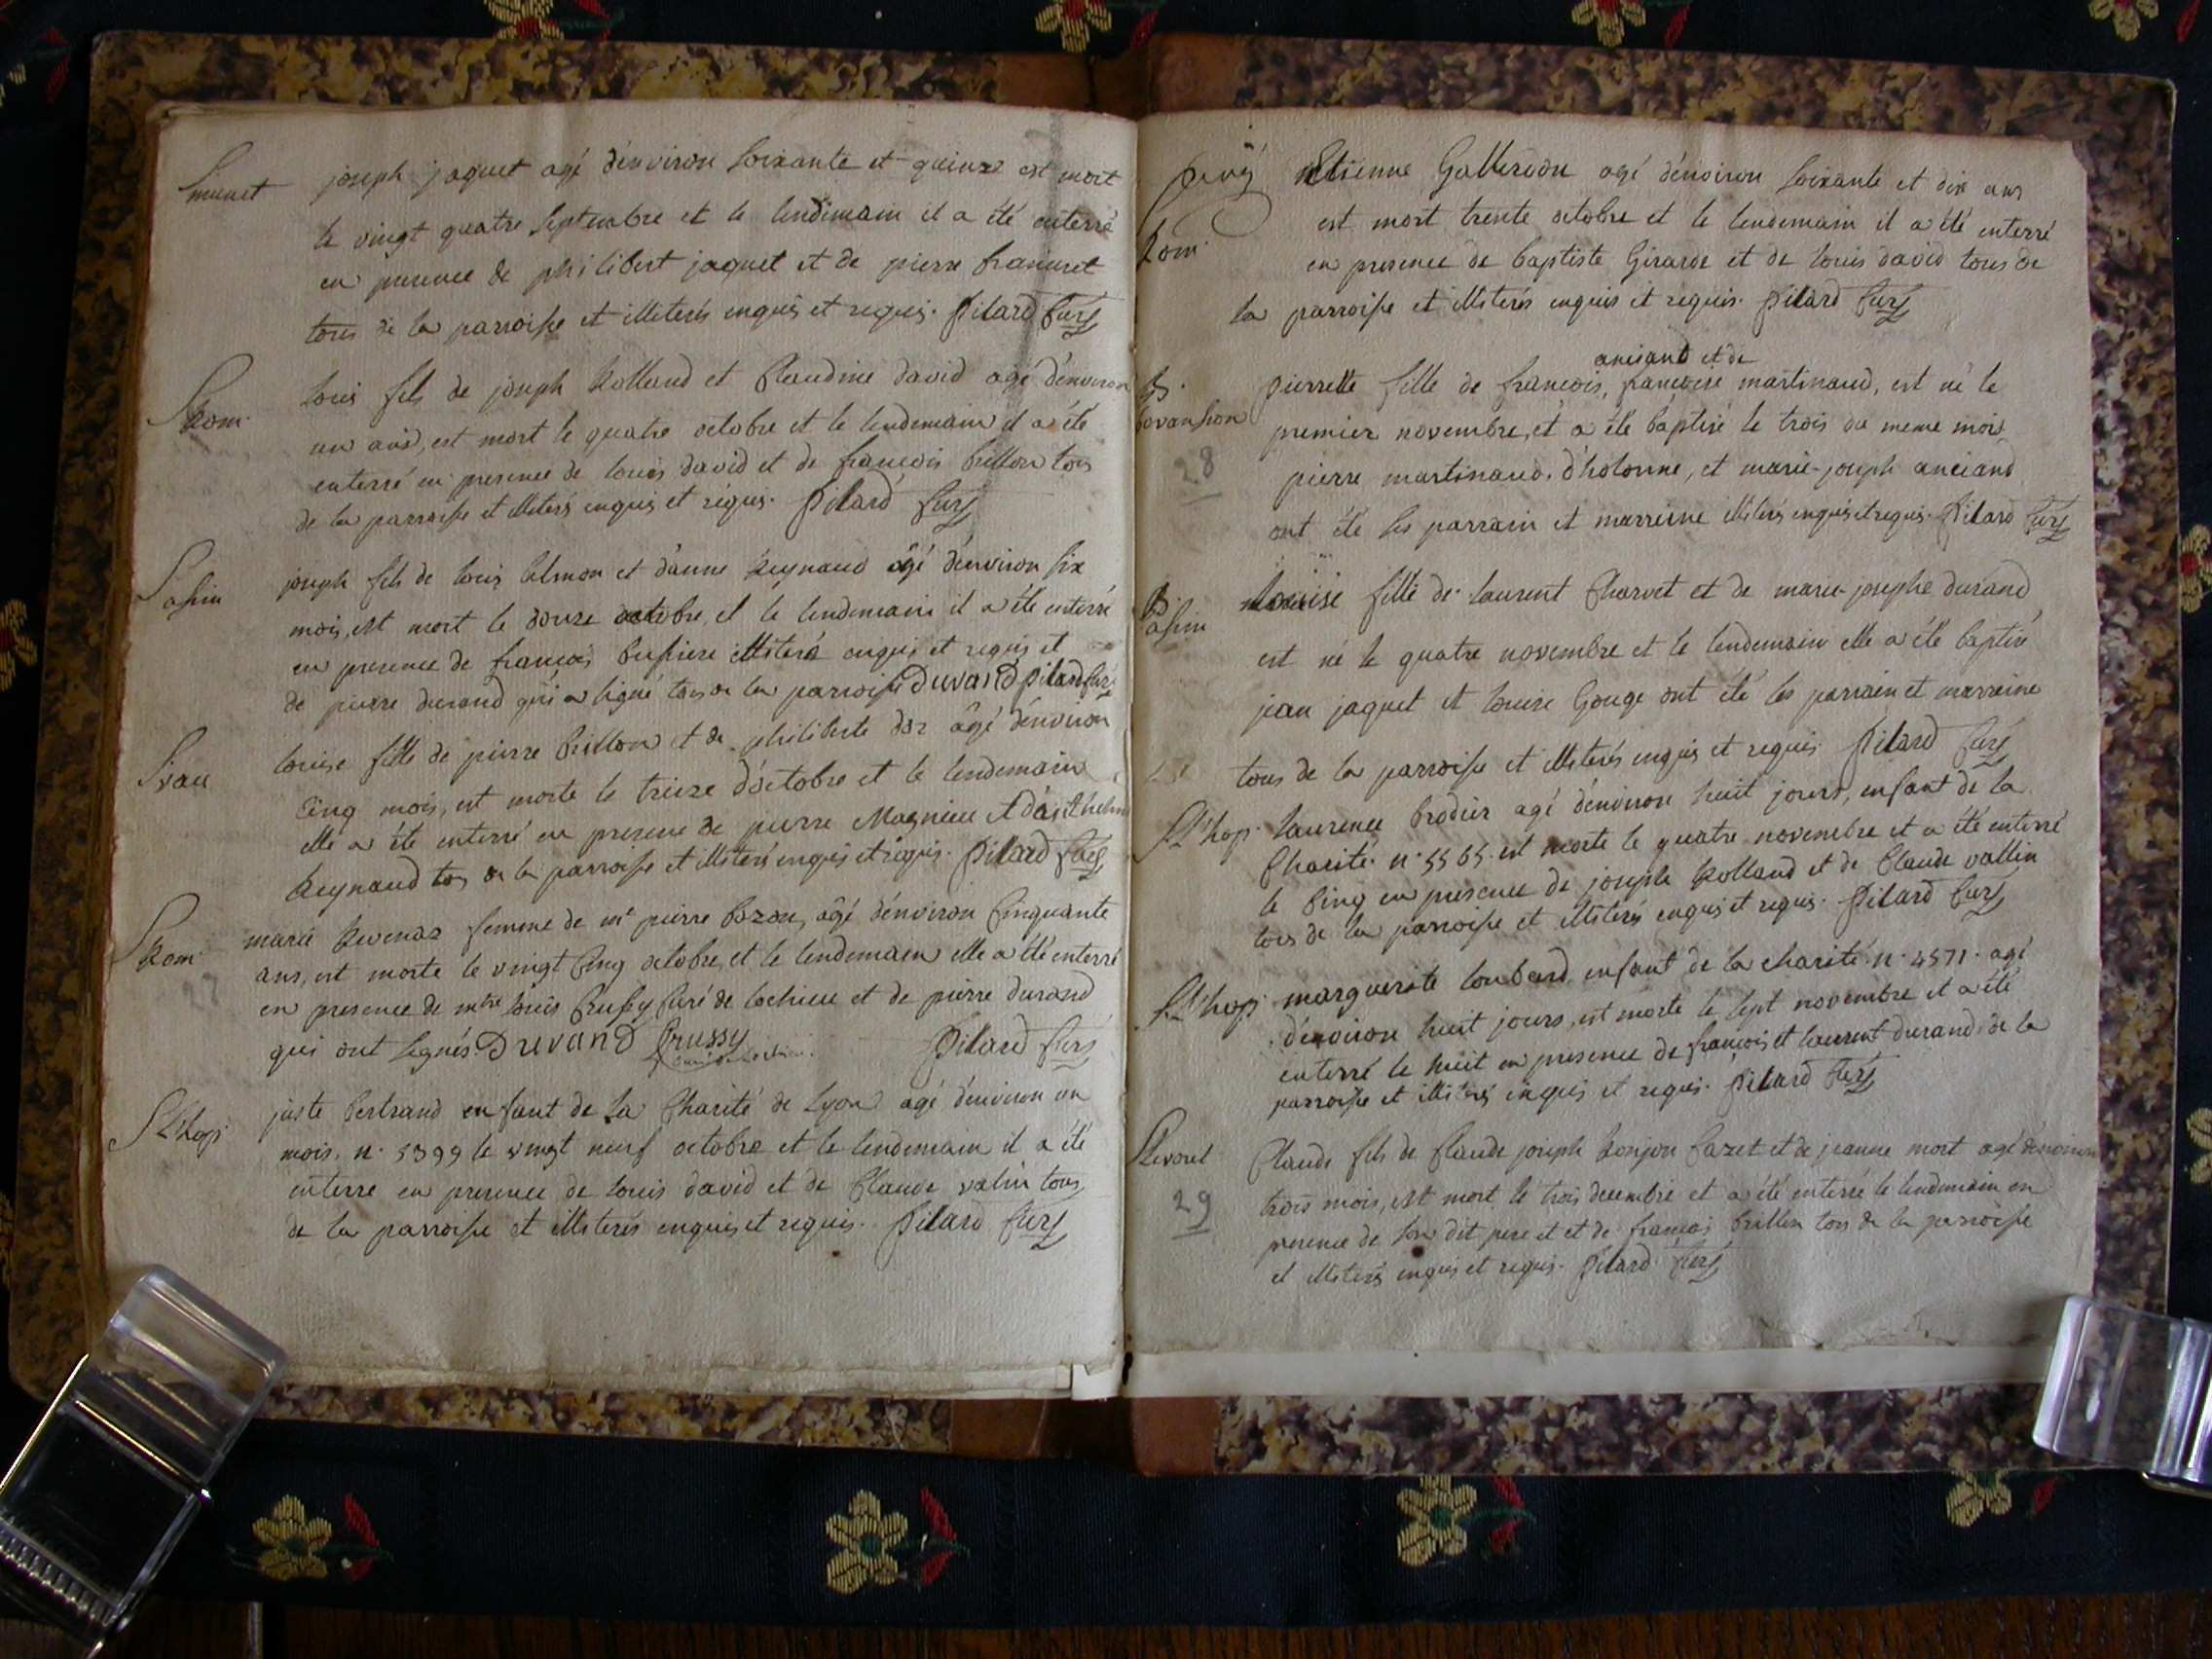 joseph jaquet agé d'environ soixante et quinze est mort
le vingt quatre septembre et le lendemain il a été enterré
en presence de philibert jaquet et de pierre francret
tous de la parroisse et illiterés enquis et requis. Pilard Curé
S Rom. louis fils de joseph Rolland et Claudine david agé d'environ
un ans, est mort le quatre octobre et le lendemain il a été
enterré en presence de louis david et de francois brillon tous
de la parroisse et illiterés enquis et requis. Pilard Curé
joseph fils de louis et d'anne Reynaud agé d'environ six
mois, est mort le douze octobre, et le lendemain il a été enterré
en presence de francois bussiere illiteré enquis et requis et
de pierre durand qui a signé tous de la parroisse Durand Pilard Curé
louise fille de pierre brillon et de philiberte agé d'environ
Cinq mois, est morte le treize d'octobre et le lendemain
elle a été enterré en presence de pierre Magnieu et d'anthelme
Reynaud tous de la parroisse et illiterés enquis et requis. Pilard Curé
S Rom. marie Revenaz femme de mr pierre bozon, agé d'environ Cinquante
ans, est morte le vingt Cinq octobre, et le lendemain elle a été enterré
27
en presence de mtre louis Crussy Curé de lochieu et de pierre durand
qui ont signés Durand Crussy Pilard Curé
S L'hop. juste bertrand enfant de la Charité de Lyon agé d'environ un
mois. n. 5399 le vingt neuf octobre et le lendemain il a été
enterré en presence de louis david et de Claude valin tous
de la parroisse et illiterés enquis et requis. Pilard Curé
Etienne Galliedon agé d'environ soixante et dix ans
est mort trente octobre et le lendemain il a été enterré
Rom.
en presence de baptiste Girarde et de louis david tous de
la parroisse et illiterés enquis et requis. Pilard Curé
anciand et de
B. pierrette fille de francois, francoise martinaud, est né le
premier novembre, et a été baptisé le trois du meme mois
28
pierre martinaud. d'holonne, et marie-joseph anciand
ont été les parrain et marreine illiterés enquis et requis. Pilard Curé
B. louise fille de laurent Charvet et de marie-josephe durand
est né le quatre novembre et le lendemain elle a été baptisé
jean jaquet et louise Gouge ont été les parrain et marreine
tous de la parroisse et illiterés enquis et requis. Pilard Curé
S L'hop. laurence brodier agé d'environ huit jours, enfant de la
Charité. n. 5565. est morte le quatre novembre et a été enterré
le Cinq en presence de joseph Rolland et de Claude vallin
tous de la parroisse et illiterés enquis et requis. Pilard Curé
S L'hop. marguerite loubard enfant de la charité. n. 4571. agé
d'environ huit jours, est morte le sept novembre et a été
enterré le huit en presence de francois et laurent durand de la
parroisse et illiterés enquis et requis. Pilard Curé
Claude fils de Claude joseph bonjon Cazet et de jeanne mort agé d'environ
29
trois mois, est mort le trois decembre et a été enterré le lendemain en
presence de son dit pere et et de francois brillon tous de la parroisse
et illiterés enquis et requis. Pilard Curé